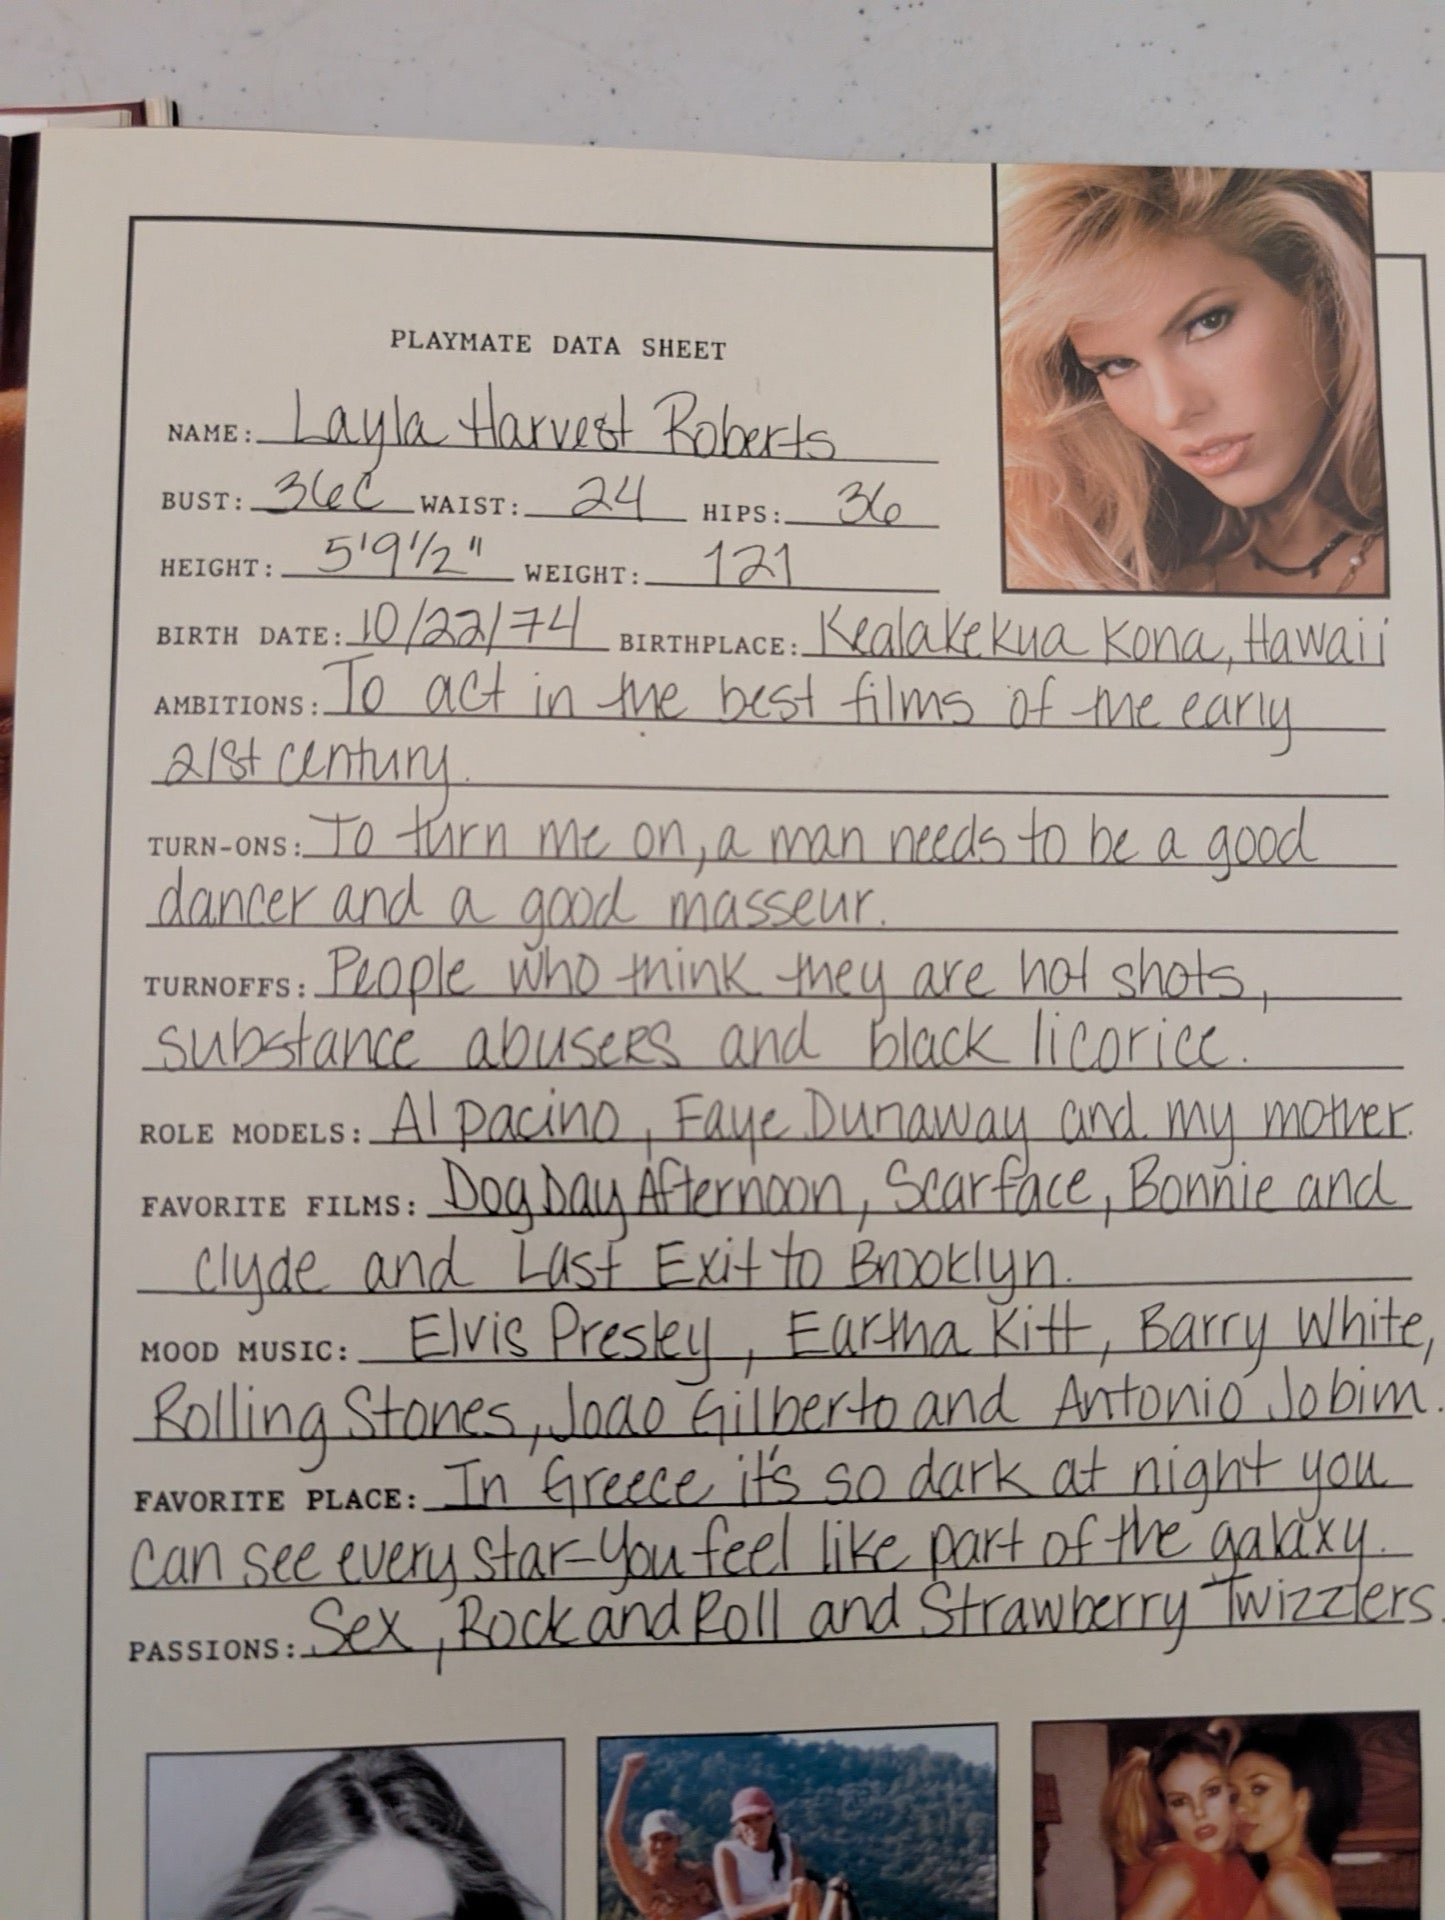 PLAYMATE DATA SHEET
NAME: Layla Harvest Roberts
BUST: 36C WAIST: 24 HIPS: 36
HEIGHT: 5'9 1/2" WEIGHT: 121
BIRTH DATE: 10/22/74 BIRTHPLACE: Kealakekua Kona, Hawaii
AMBITIONS: To act in the best films of the early
21st century.
TURN-ONS: To turn me on, a man needs to be a good
dancer and a good masseur.
TURNOFFS: People who think they are hot shots,
substance abusers and black licorice.
ROLE MODELS: Al Pacino, Faye Dunaway and my mother.
FAVORITE FILMS: Dog Day Afternoon, Scarface, Bonnie and
Clyde and Last Exit to Brooklyn.
MOOD MUSIC: Elvis Presley, Eartha Kitt, Barry White,
Rolling Stones, Joao Gilberto and Antonio Jobim.
FAVORITE PLACE: In Greece it's so dark at night you
can see every star-you feel like part of the galaxy.
PASSIONS: Sex, Rock and Roll and Strawberry Twizzlers.